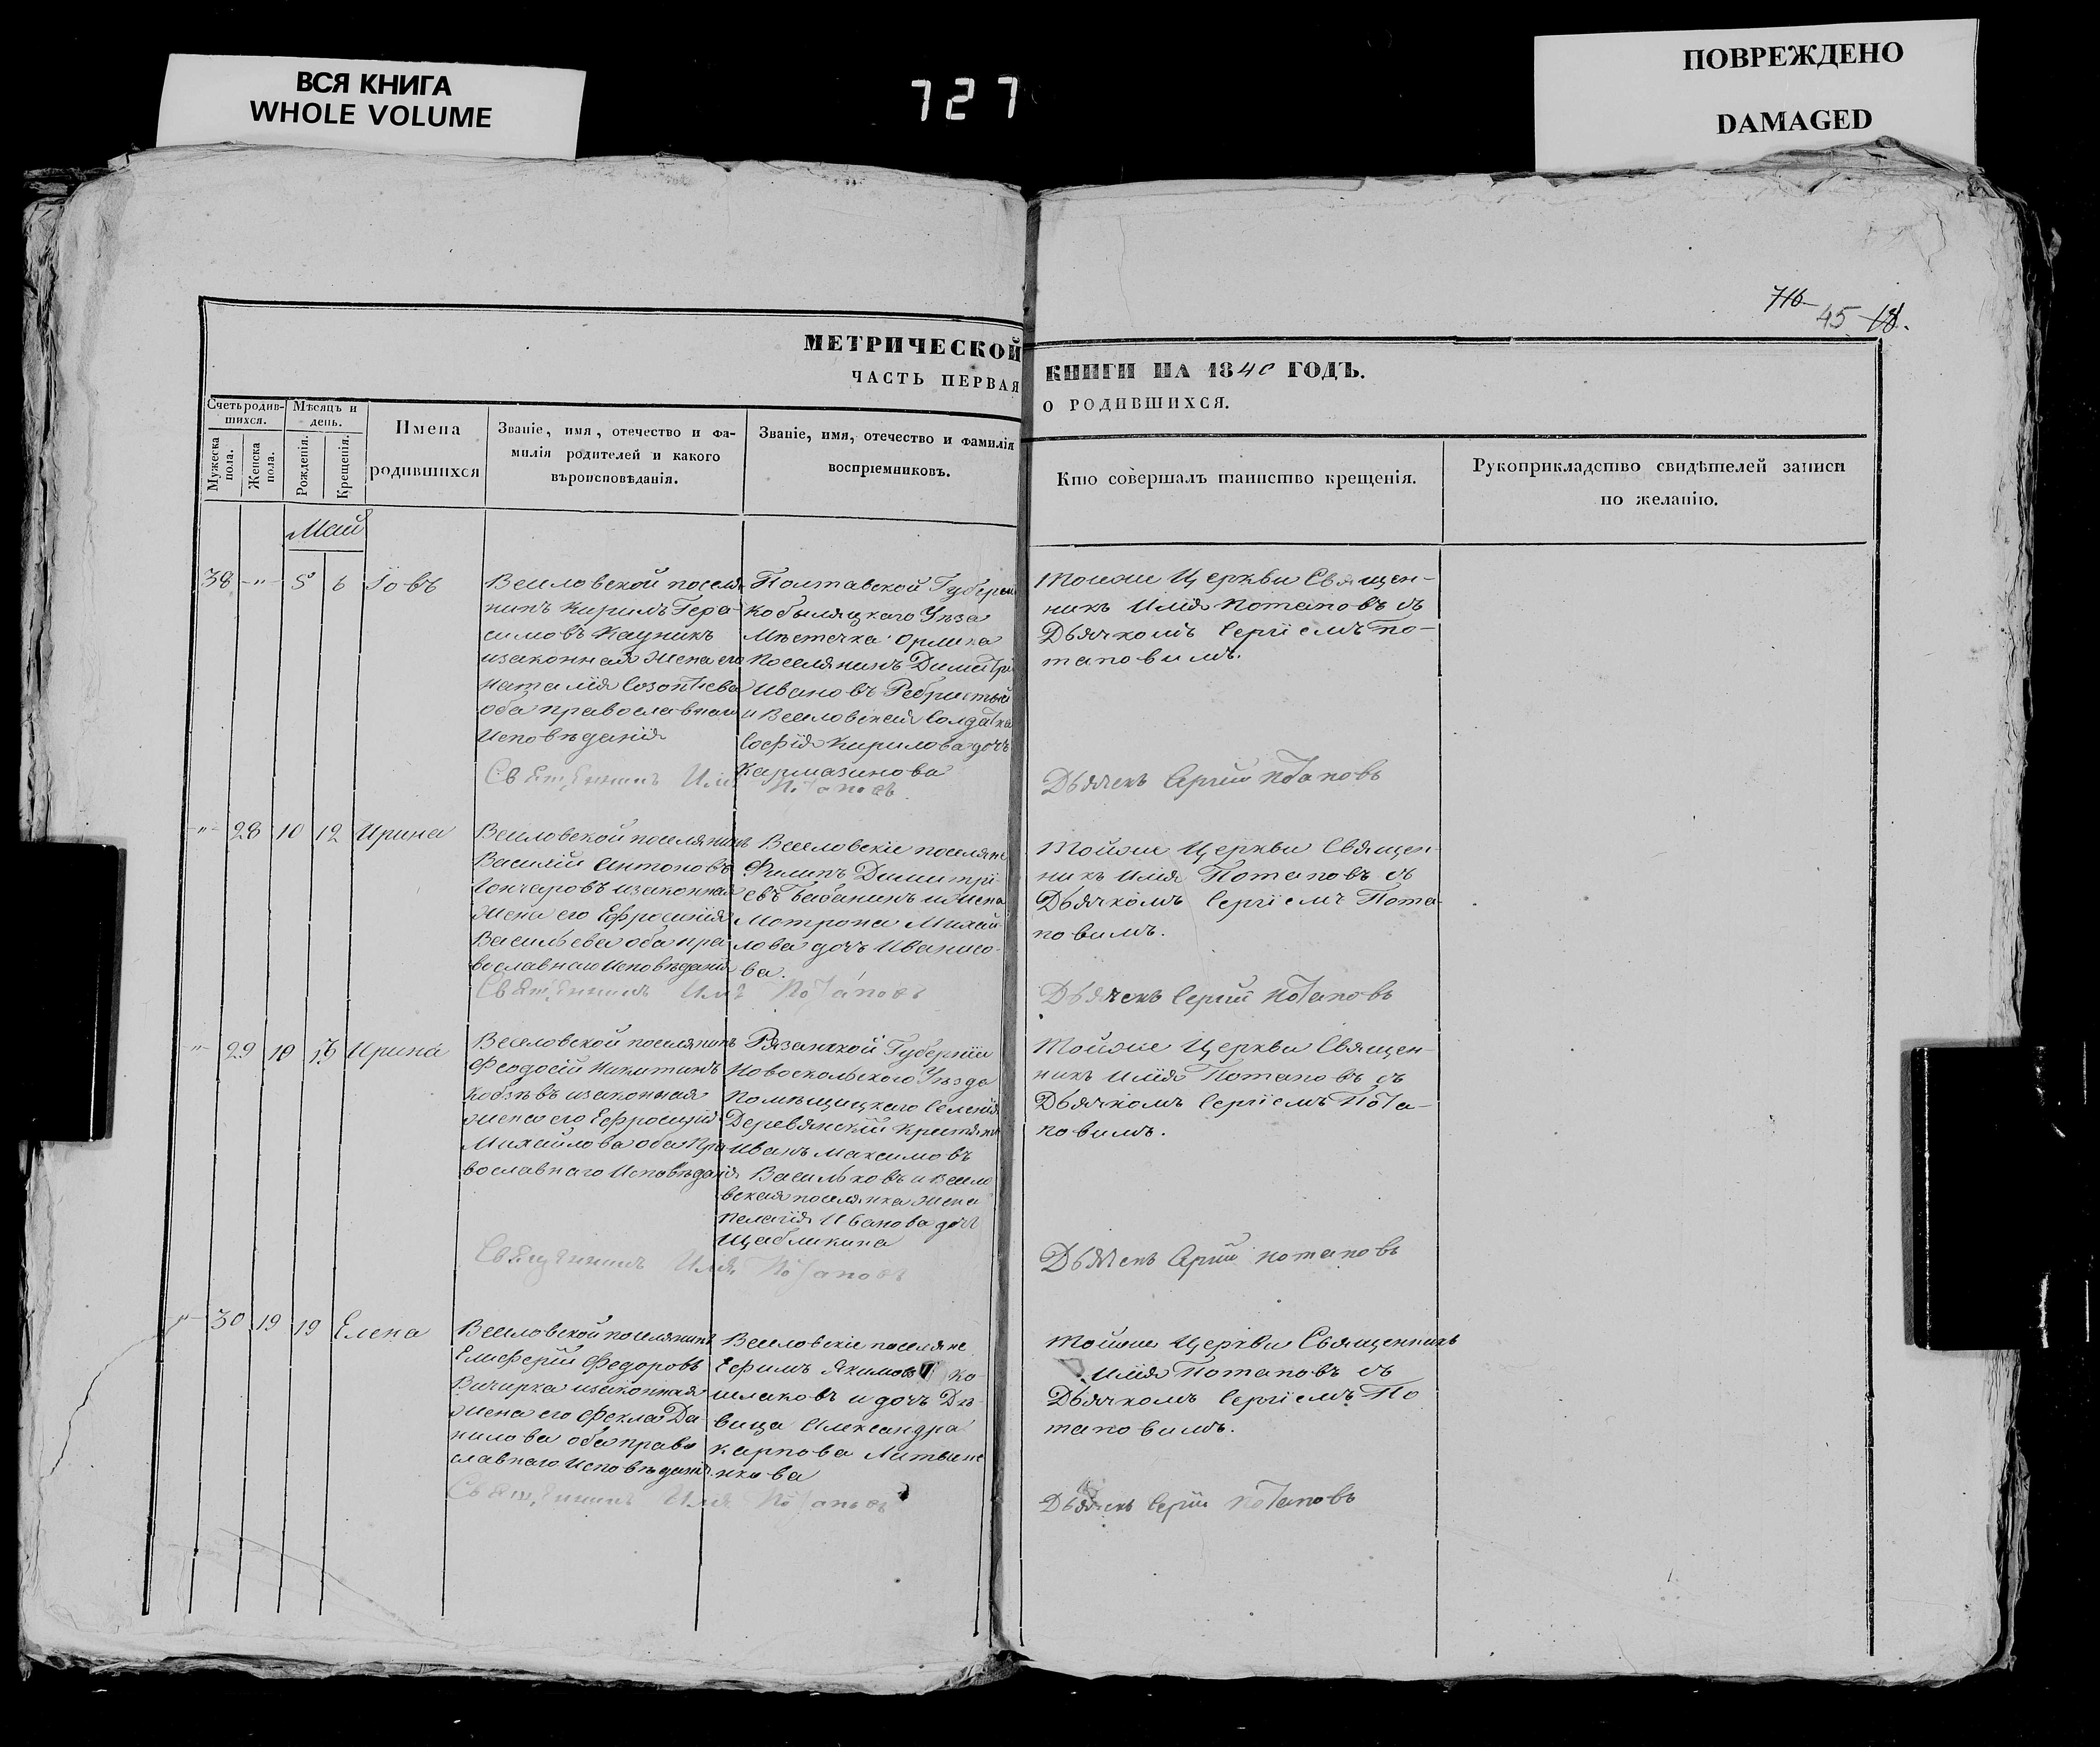 ВСЯ КНИГА
WHOLE VOLUME
727
ПОВРЕЖДЕНО
DAMAGED
716
45 18.
МЕТРИЧЕСКОЙ
ЧАСТЬ ПЕРВАЯ
КНИГИ НА 1840 ГОДЪ.
О РОДИВШИХСЯ.
Счетъ родив-
шихся.
Мужеска
пола.
Женска
пола.
Мѣсяцъ и
день.
Рожденія.
Крещенія.
Имена
родившихся
Званіе, имя, отечество и фа-
милія родителей и какого
вѣроисповѣданія.
Званіе, имя, отечество и фамилія
воспріемниковъ.
Кто совершалъ таинство крещенія.
Рукоприкладство свидѣтелей записи
по желанію.
Май
38 -"- 5 6 Іовъ
Веселовской поселя
нинъ Кирилъ Гера
симовъ Кацникъ
изаконная жена его
Наталія Созонтіева
оба православнаго
Исповѣданія
Полтавской Губерніи
Кобыляцкаго Уѣзда
Мѣстечка Орлика
Поселянинъ Димитрій
Ивановъ Ребристый
и Веселовская Солдатка
Софія Кирилова дочь
Кармазинова
Тойже Церкви Священ-
никъ Илія Потаповъ съ
Дьячкомъ Сергіемъ По-
таповимъ.
Священникъ Илія Потаповъ
Дьячекъ Сергій Потаповъ
-"- 28 10 12 Ирина
Веселовской поселянинъ
Василій Антоновъ
Гончаровъ изаконная
жена его Ефросинія
Васильева оба пра
вославнаго Исповѣданія
Веселовскіе поселяне
Филипъ Димитрі-
евъ Бабанинъ и жена
Мотрона Михай
лова дочь Иванисо-
ва.
Тойже Церкви Священ-
никъ Илія Потаповъ съ
Дьячкомъ Сергіемъ Пота-
повимъ.
Священникъ Илія Потаповъ
Дьячекъ Сергій Потаповъ
-"- 29 10 Ирина
Веселовской поселянинъ
Феодосій Никитинъ
Кобзѣвъ изаконная
жена его Ефросинія
Михайлова оба Пра
вославнаго Исповѣданія
Рязанской Губерніи
Новоскольского Уѣзда
Помѣщицкаго Селенія
Деревянскій Крестянинъ
Иванъ Максимовъ
Васильковъ и Весело
вская поселянка жена
Пелагія Иванова дочь
Щабликина
Тойже Церкви Священ-
никъ Илія Потаповъ съ
Дьячкомъ Сергіемъ Пота-
повимъ.
Священникъ Илія Потаповъ
Дьячекъ Сергій Потаповъ
-"- 30 19 19 Елена
Веселовской поселянинъ
Елисферій Федоровъ
Вичирка изаконная
жена его Фекла Да-
нилова оба право
славнаго Исповѣданія
Веселовскіе поселяне
Ефимъ Якимовъ Ко-
шлаковъ и дочь Дѣ-
вица Александра
Карпова Литвине
нкова
Тойже Церкви Священникъ
Илія Потаповъ съ
Дьячкомъ Сергіемъ По
таповимъ.
Священникъ Илія Потаповъ
Дьячекъ Сергій Потаповъ